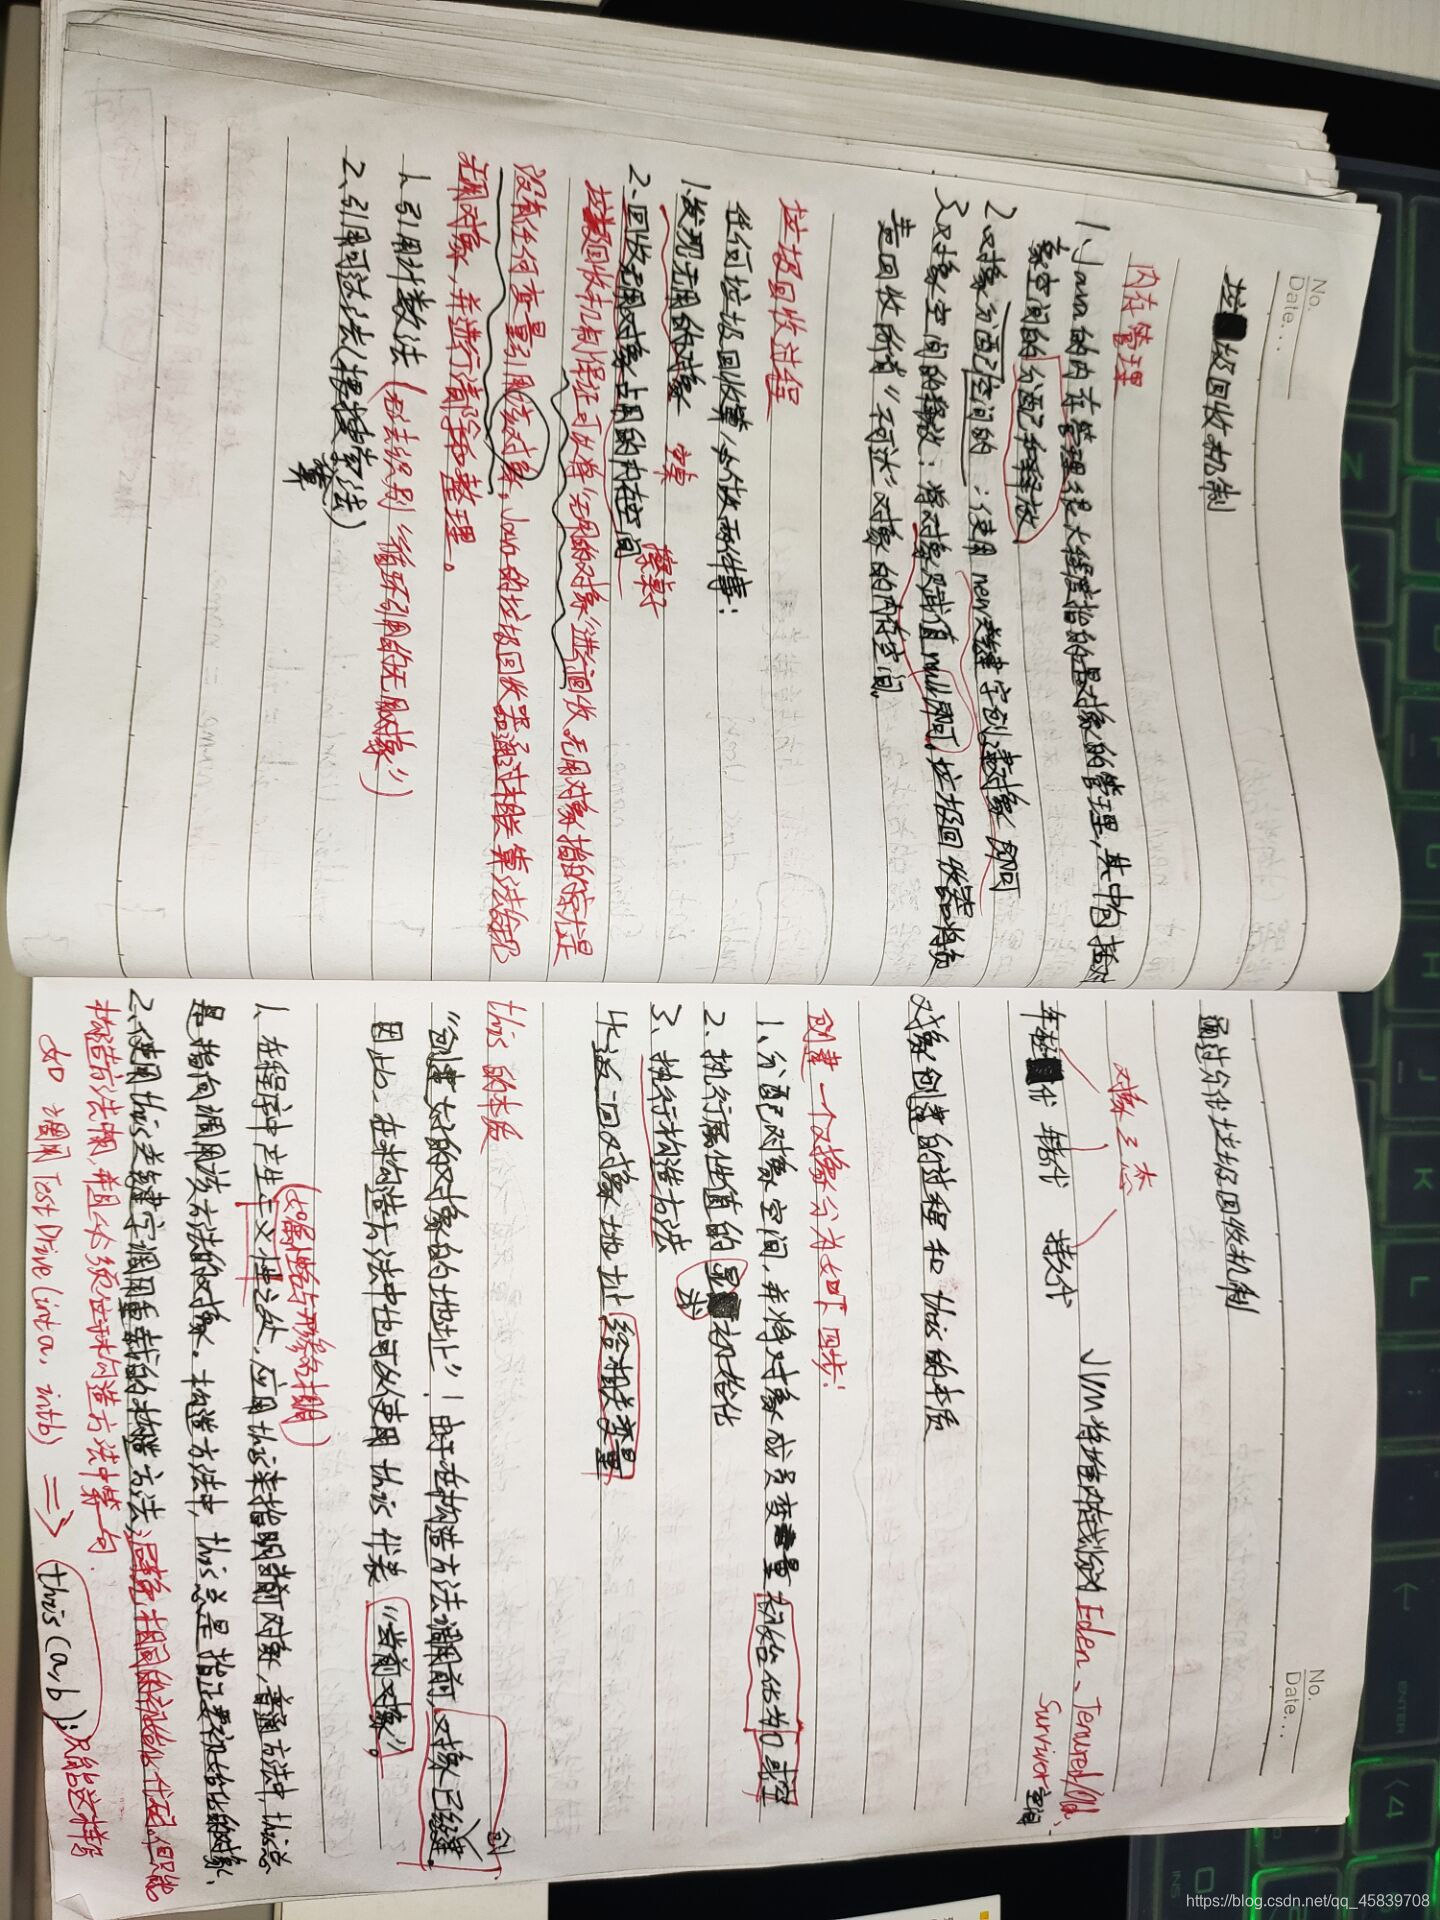 No.
Date...
垃圾回收机制
内存管理
1、Java的内存管理很大程度指的是对象的管理，其中包括对
象空间的分配和释放
2、对象分配空间的：使用new关键字创建对象即可
3、对象空间的释放：将对象赋值null即可。垃圾回收器将负
责回收所有“不可达”对象的内存空间。
垃圾回收过程
任何垃圾回收算法做两件事：
1、发现无用的对象
2、回收无用对象占用的内存空间
垃圾回收机制保证可以将“无用的对象”进行回收。无用对象指的就是
没有任何变量引用该对象。Java的垃圾回收器通过相关算法发现
无用对象，并进行清除和整理。
1、引用计数法（无法识别“循环引用的无用对象”）
2、引用可达法（根搜索算法）
No.
Date...
通过分代垃圾回收机制
对象三态
JVM将堆内存划分为Eden、Tenured/Old、
Survivor空间
年轻代 年老代 持久代
对象创建的过程和this的本质
创建一个对象分为如下四步：
1、分配对象空间，并将对象成员变量初始化为0或空
2、执行属性值的显式初始化
3、执行构造方法
4、返回对象地址给相关变量
this的本质
“创建好的对象的地址”！由于在构造方法调用前，对象已经创建。
因此，在构造方法中也可以使用this代表“当前对象”。
（如属性名与形参名相同）
1、在程序中产生二义性之处，应用this来指明当前对象，普通方法中，this总
是指向调用该方法的对象。构造方法中，this总是指正要初始化的对象。
2、使用this关键字调用重载的构造方法，避免相同的初始化代码。但只能
构造方法中用，并且必须位于构造方法中第一句
如 调用TestDrive(int a, int b) => this(a,b);只能这样写
https://blog.csdn.net/qq_45839708